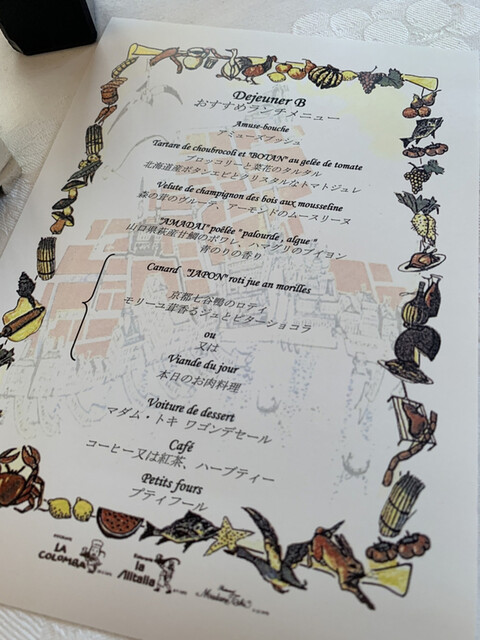 Dejeuner B
おすすめランチメニュー
Amuse-bouche
アミューズブッシュ
Tartare de choubrocoli et "BOTAN" au gelée de tomate
ブロッコリーと菜花のタルタル
北海道産ボタンエビとクリスタルなトマトジュレ
Velute de champignon des bois aux mousseline
森の茸のヴルーテ アーモンドのムースリーヌ
"AMADAI" poêlée "palourde, algue"
山口県萩産甘鯛のポワレ、ハマグリのブイヨン
青のりの香り
Canard "JAPON" roti jue an morilles
京都七谷鴨のロティ
モリーユ茸香るジュとビターショコラ
ou
又は
Viande du jour
本日のお肉料理
Voiture de dessert
マダム・トキ ワゴンデセール
Café
コーヒー又は紅茶、ハーブティー
Petits fours
プティフール
LA COLOMBA
la Alitalia